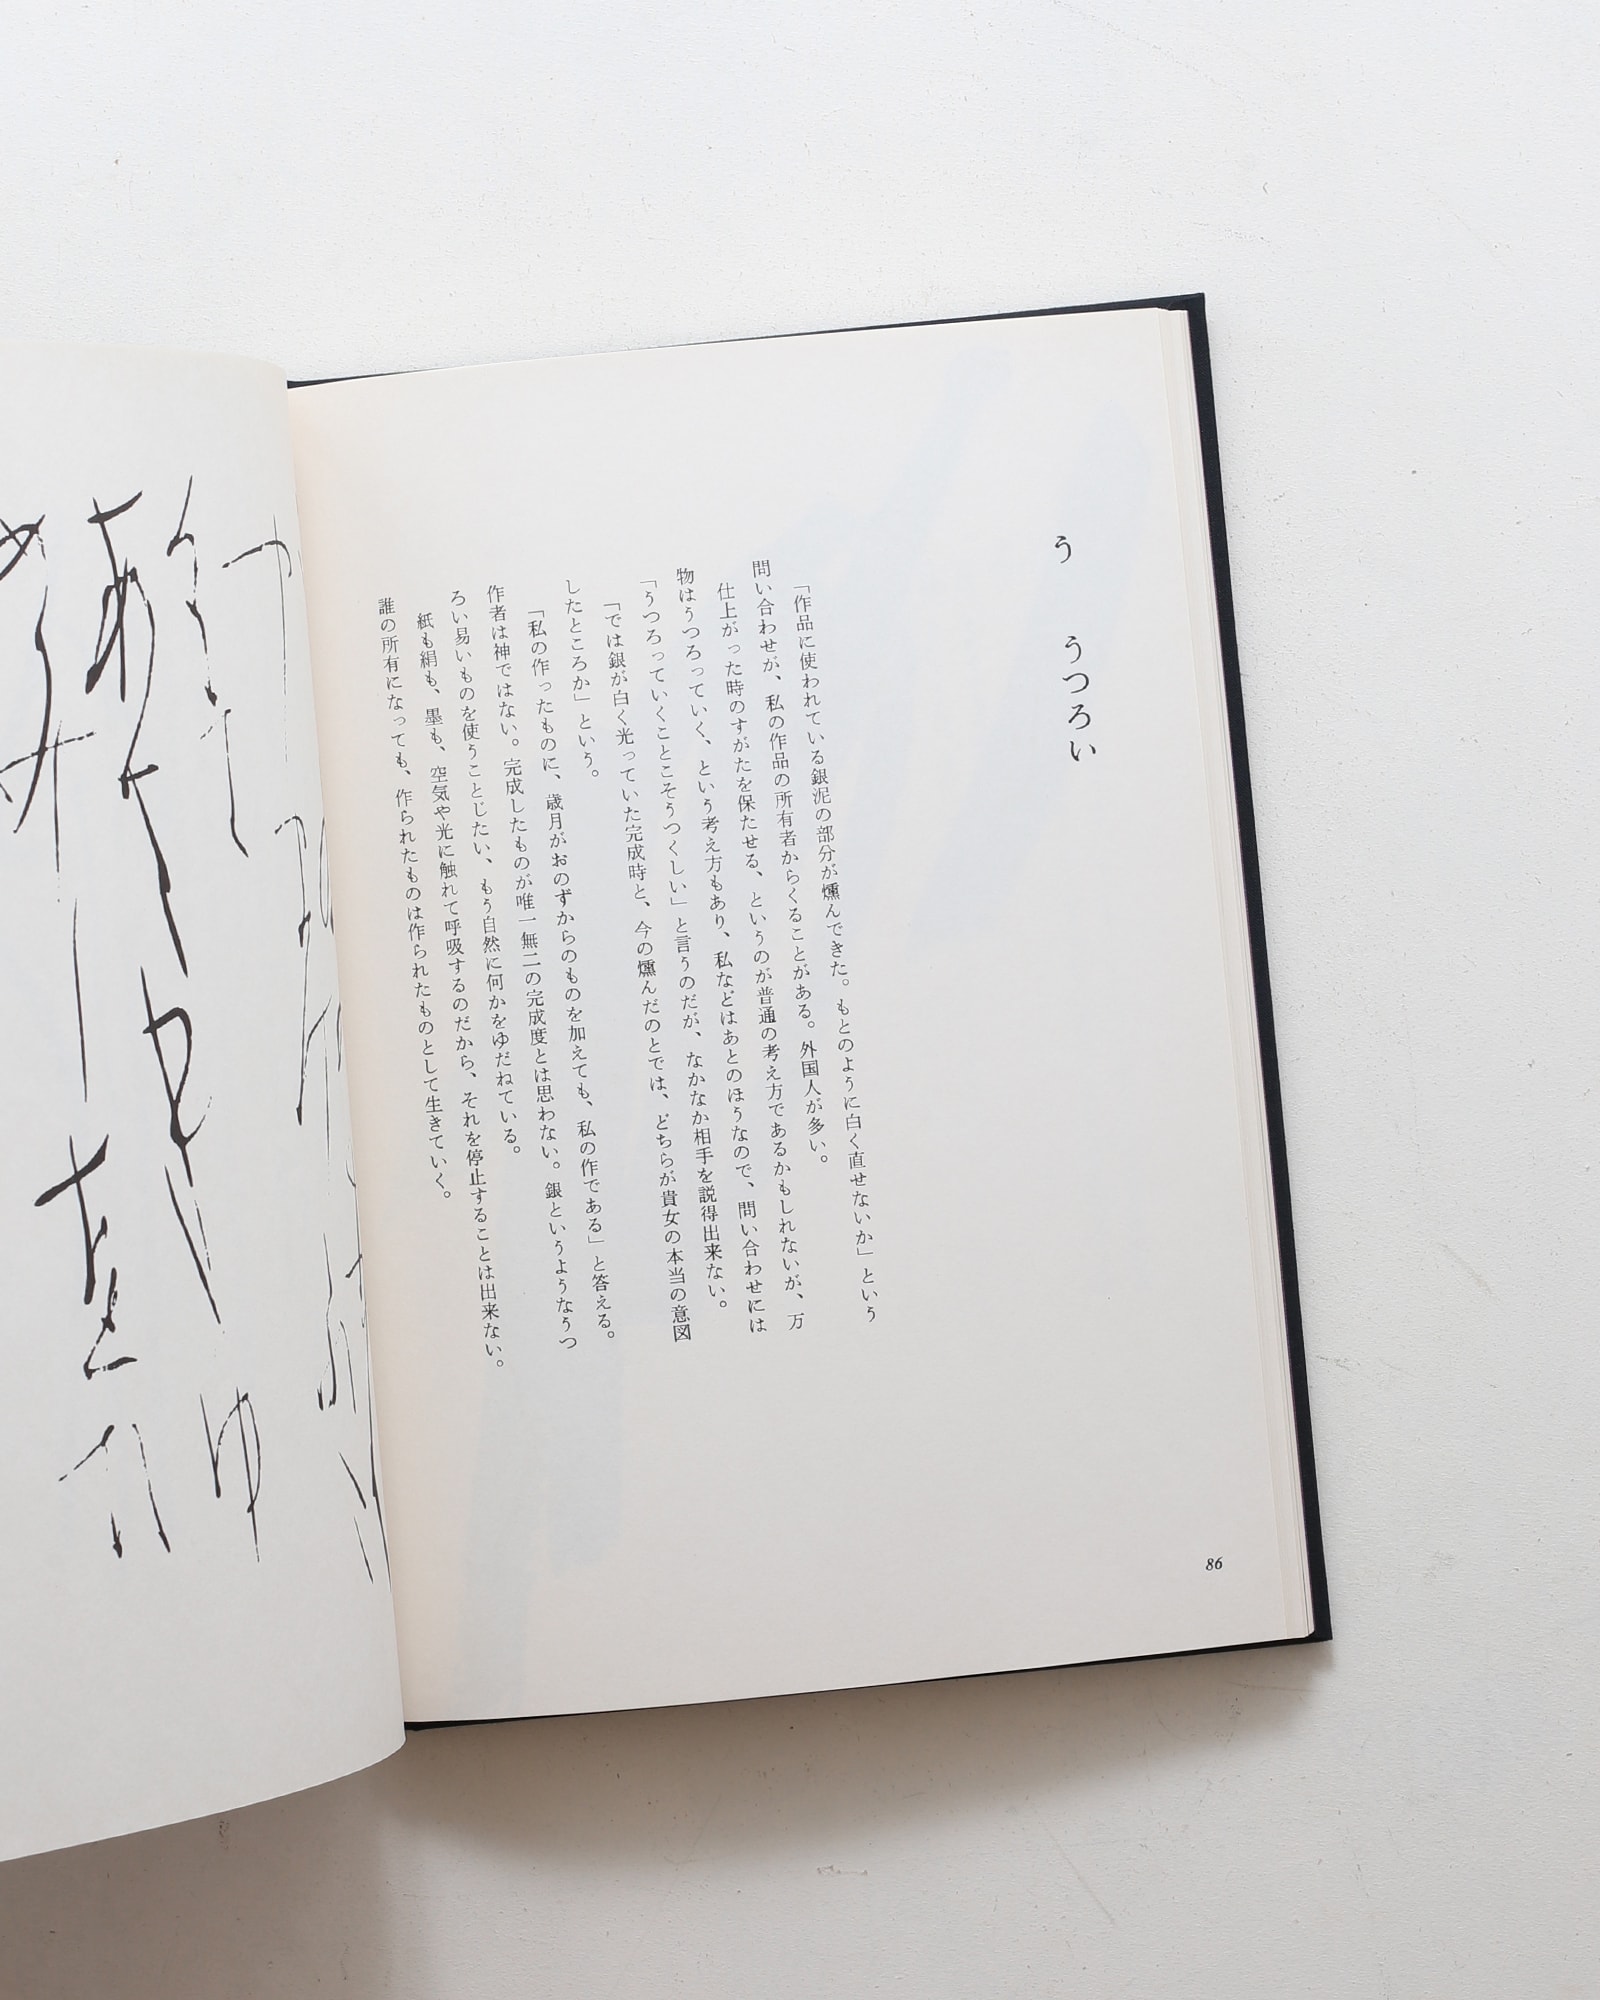 う　うつろい
「作品に使われている銀泥の部分が燻んできた。もとのように白く直せないか」という
問い合わせが、私の作品の所有者からくることがある。外国人が多い。
仕上がった時のすがたを保たせる、というのが普通の考え方であるかもしれないが、万
物はうつろっていく、という考え方もあり、私などはあとのほうなので、問い合わせには
「うつろっていくことこそうつくしい」と言うのだが、なかなか相手を説得出来ない。
「では銀が白く光っていた完成時と、今の燻んだのとでは、どちらが貴女の本当の意図
したところか」という。
「私の作ったものに、歳月がおのずからのものを加えても、私の作である」と答える。
作者は神ではない。完成したものが唯一無二の完成度とは思わない。銀というようなうつ
ろい易いものを使うことじたい、もう自然に何かをゆだねている。
紙も絹も、墨も、空気や光に触れて呼吸するのだから、それを停止することは出来ない。
誰の所有になっても、作られたものは作られたものとして生きていく。
86